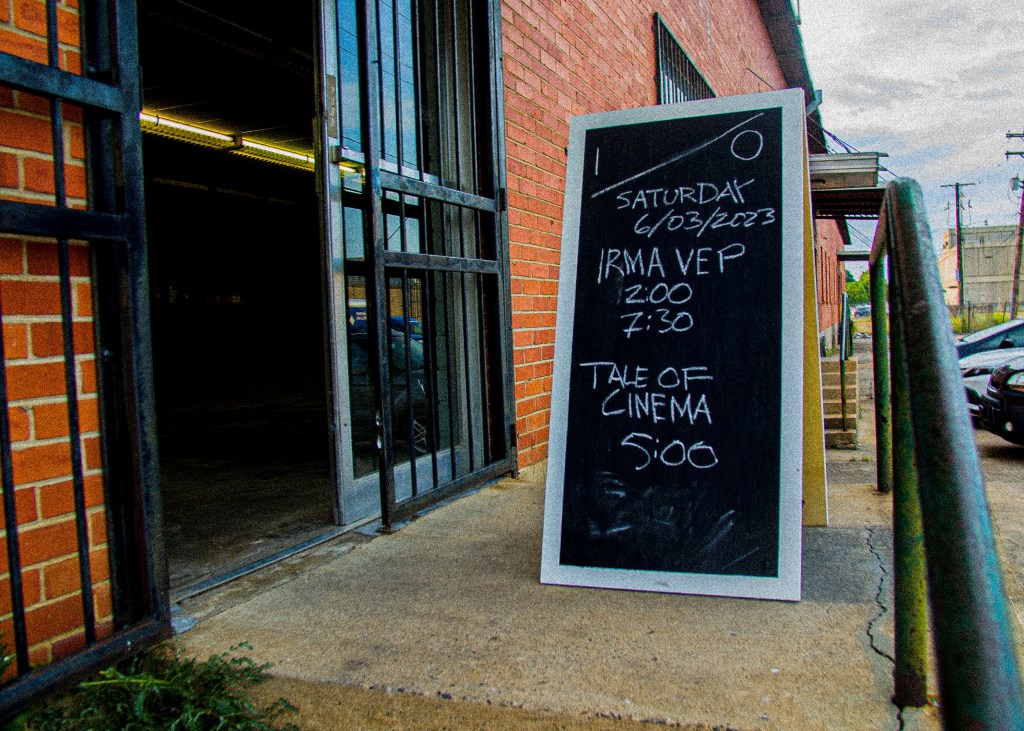 I / O
SATURDAY
6/03/2023
IRMA VEP
2:00
7:30
TALE OF
CINEMA
5:00